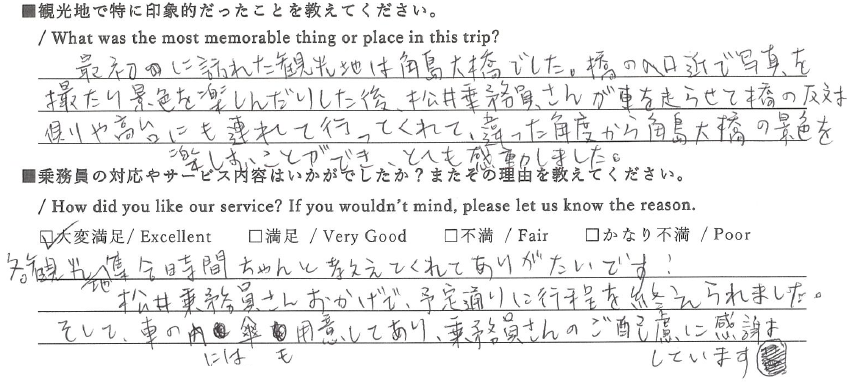 ■観光地で特に印象的だったことを教えてください。
/ What was the most memorable thing or place in this trip?
最初に訪れた観光地は角島大橋でした。橋の入口近で写真を
撮たり景色を楽しんだりした後、松井乗務員さんが車を走らせて橋の反対
側りや高台にも連れて行ってくれて、違った角度から角島大橋の景色を
楽しむことができ、とても感動しました。
■乗務員の対応やサービス内容はいかがでしたか？またその理由を教えてください。
/ How did you like our service? If you wouldn't mind, please let us know the reason.
☑大変満足 / Excellent □満足 / Very Good □不満 / Fair □かなり不満 / Poor
各観光地集合時間ちゃんと教えてくれてありがたいです！
松井乗務員さんおかげで、予定通りに行程を終えられました。
そして、車の内には傘も用意してあり、乗務員さんのご配慮に感謝ま
しています